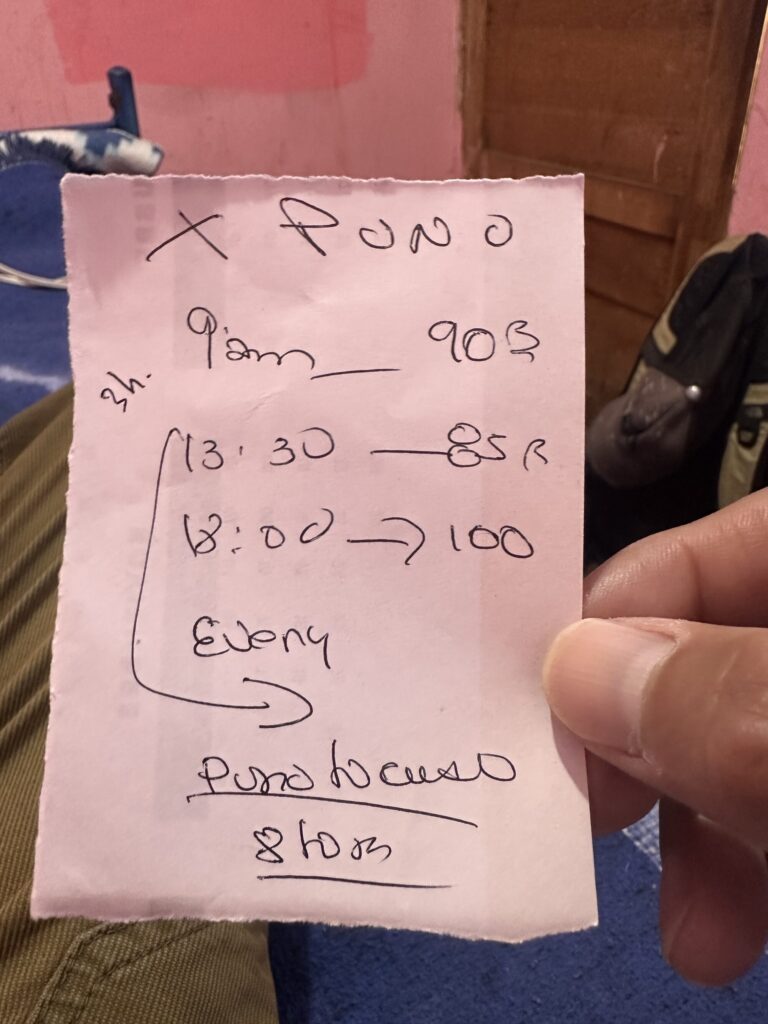 X PUNO
9:am — 90B
3h.
13:30 — 85B
18:00 → 100
Every
Puno to cusco
8 tom